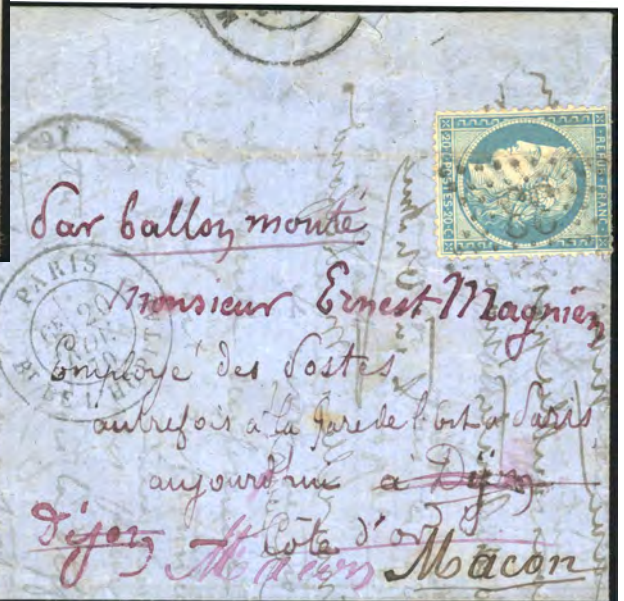 20 C POSTES 20 C
REPUB FRANC
Par ballon monté
PARIS
20
NOV
Monsieur Ernest Magnien
Employé des Postes
autrefois à la gare de l'Est à Paris
aujourd'hui à Dijon
Dijon Côte d'or
Macon Macon